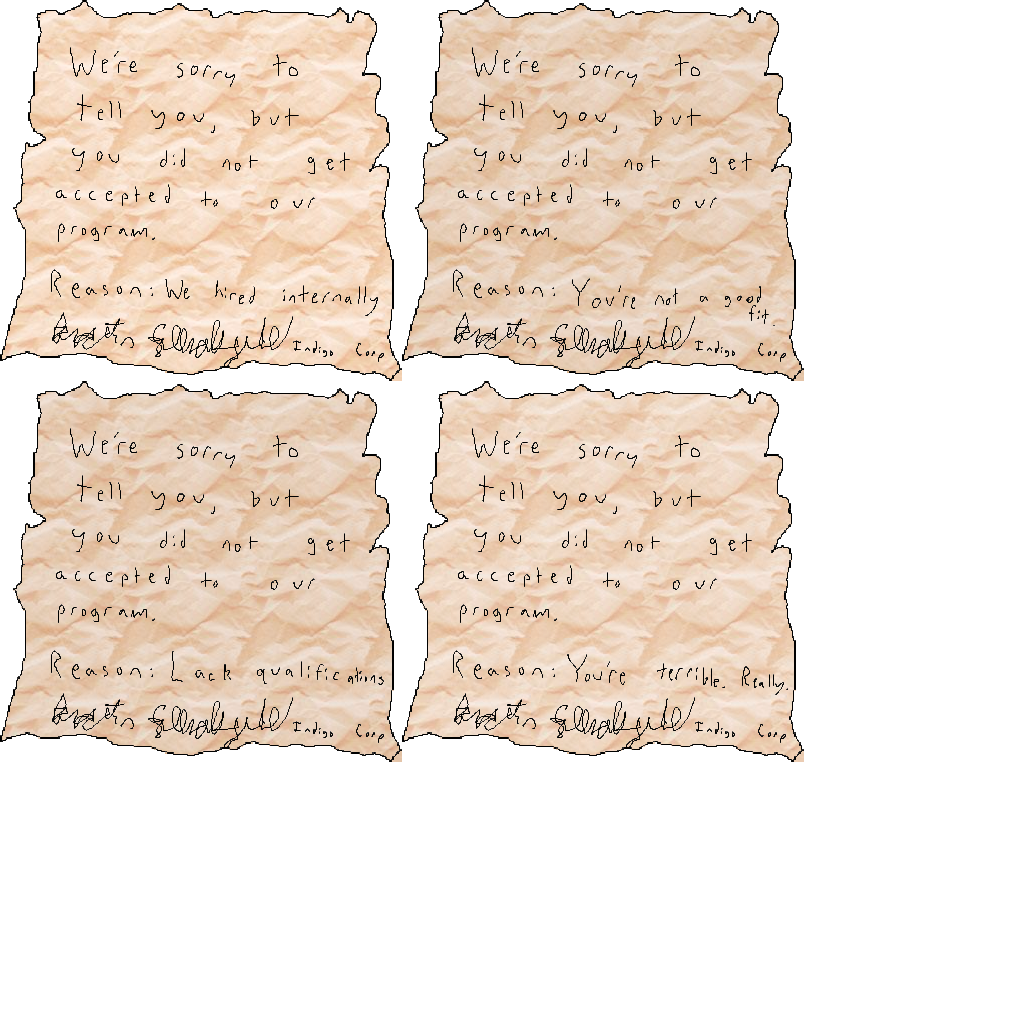 We're sorry to
tell you, but
you did not get
accepted to our
program.
Reason: We hired internally
Indigo Corp
We're sorry to
tell you, but
you did not get
accepted to our
program.
Reason: You're not a good
fit.
Indigo Corp
We're sorry to
tell you, but
you did not get
accepted to our
program.
Reason: Lack qualifications
Indigo Corp
We're sorry to
tell you, but
you did not get
accepted to our
program.
Reason: You're terrible. Really.
Indigo Corp